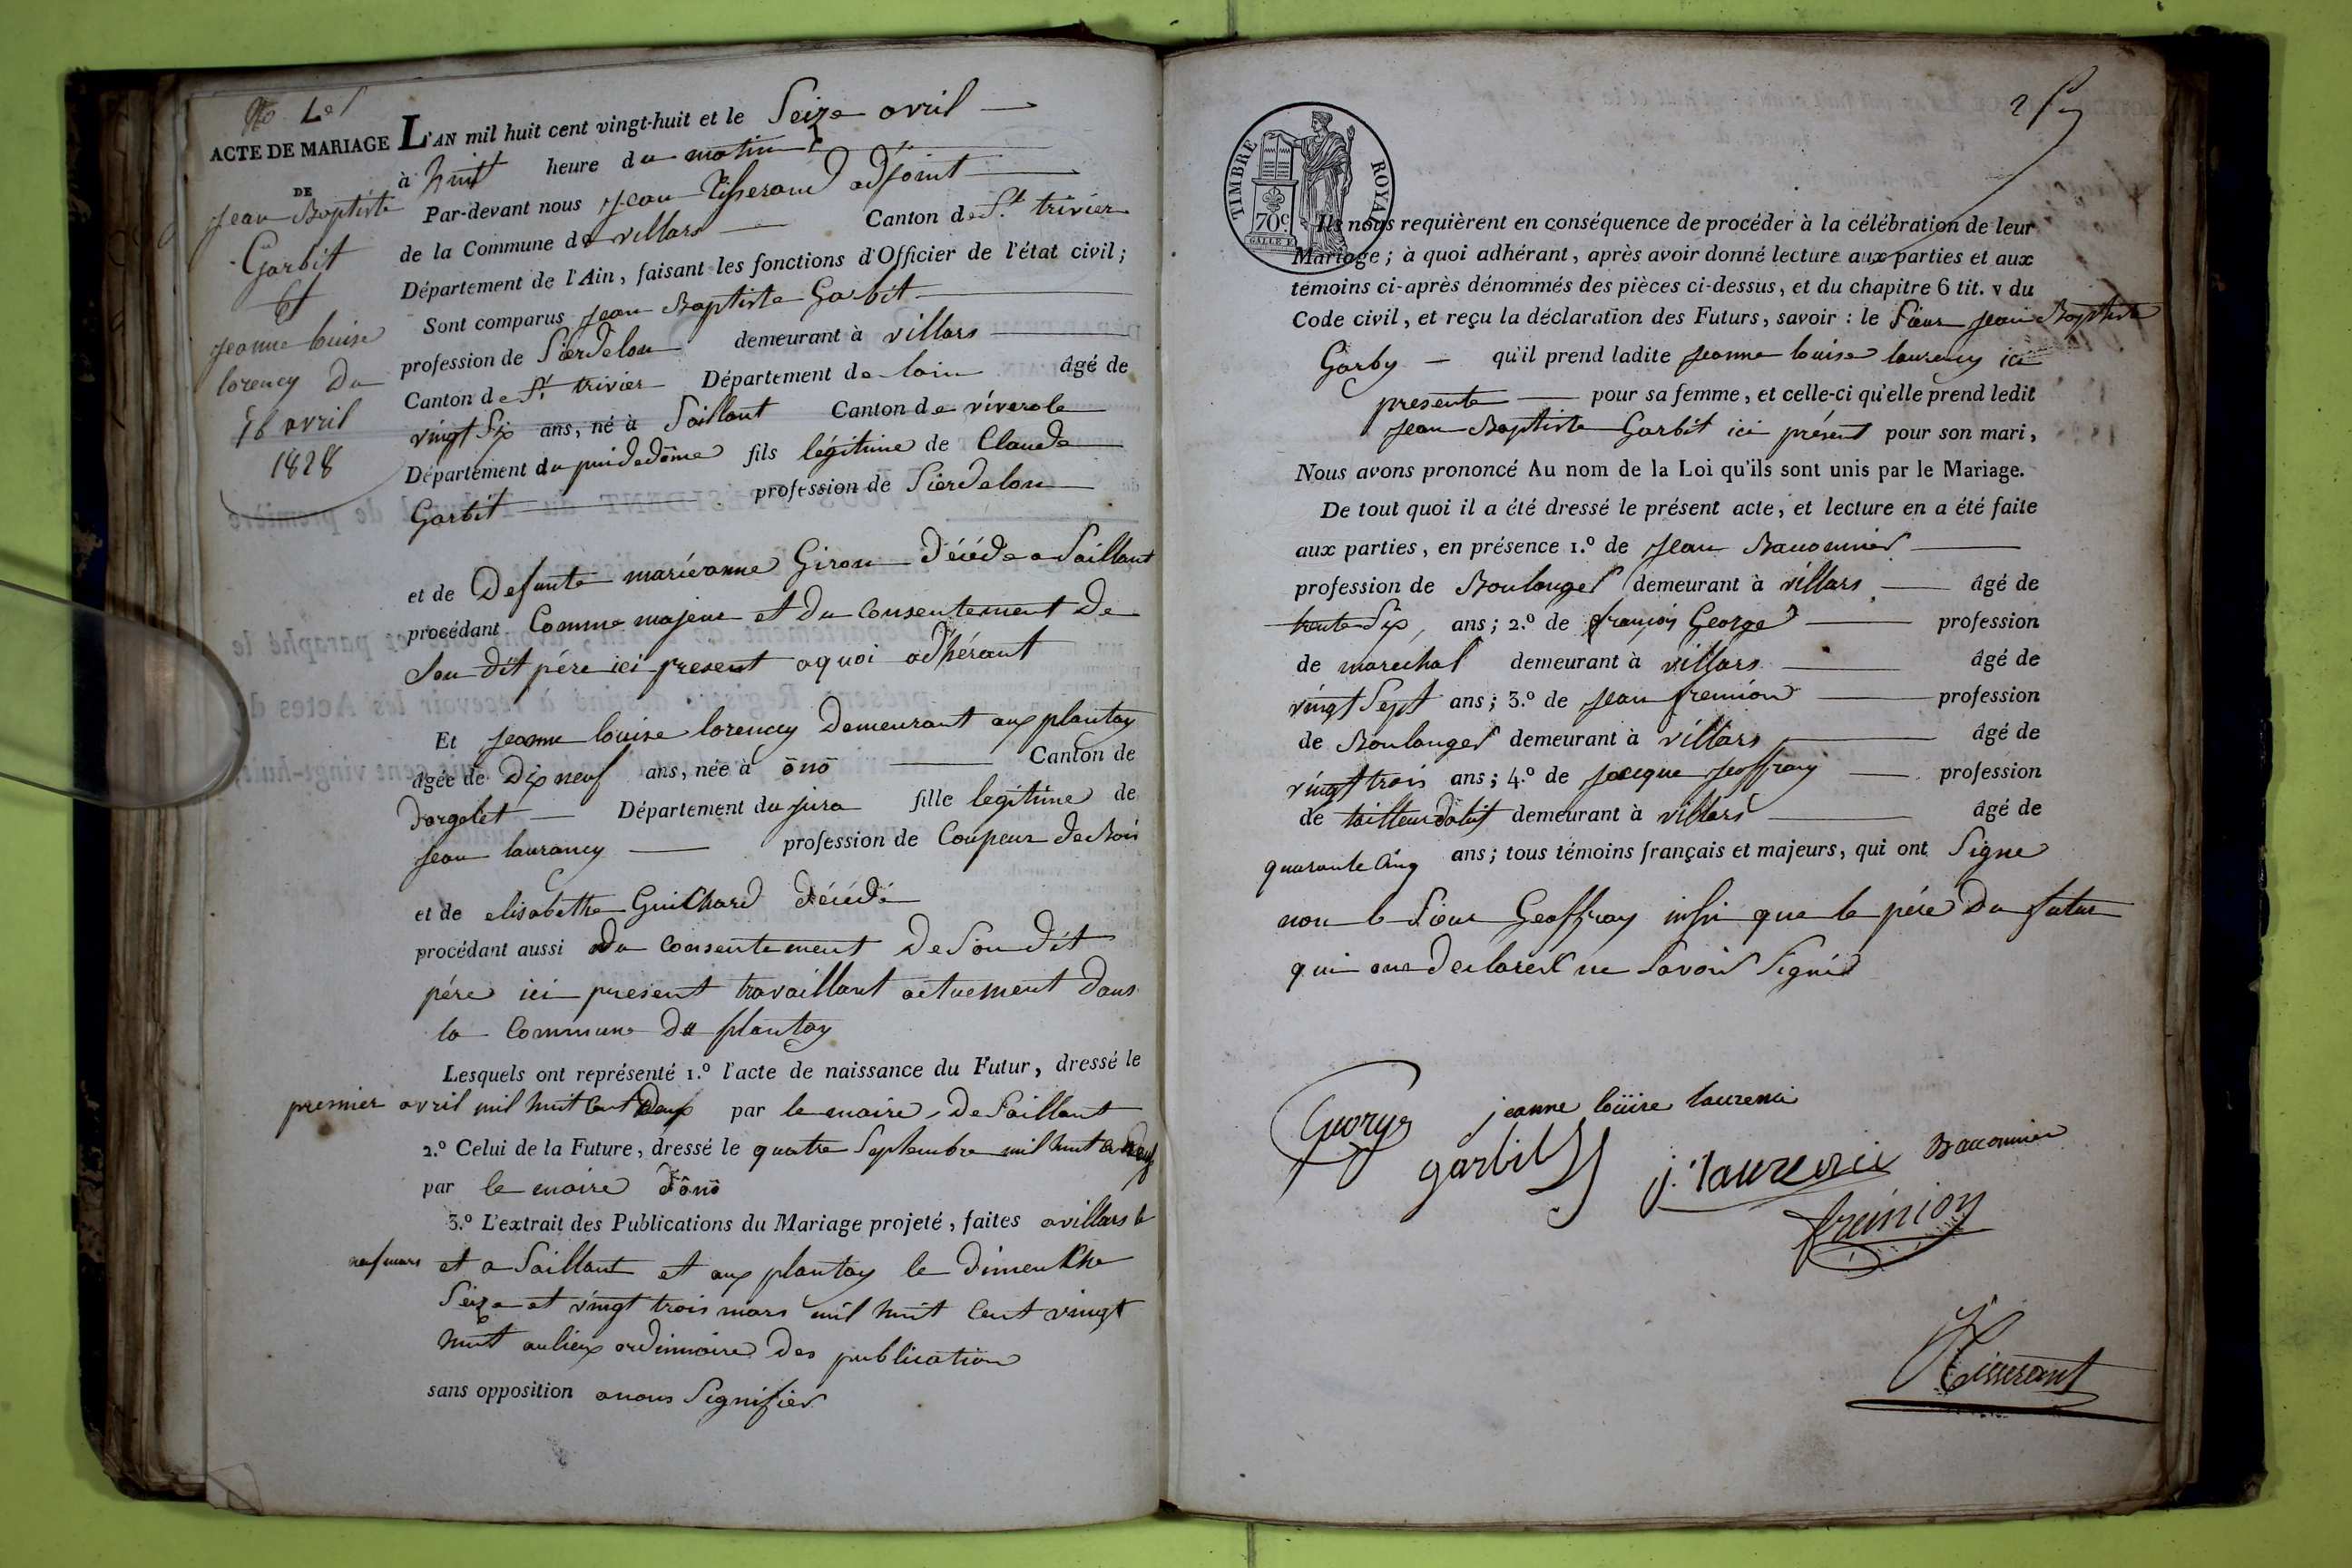 ACTE DE MARIAGE
DE
Jean Baptiste
Garbit
Et
Jeanne louise
lorency du
16 avril
1828
L'AN mil huit cent vingt-huit et le Seize avril
à huit heure du matin
Par-devant nous Jean Tisserand adjoint
de la Commune de villars Canton de St. trivier
Département de l'Ain, faisant les fonctions d'Officier de l'état civil;
Sont comparus Jean Baptiste Garbit
profession de Sierdelon demeurant à villars
Canton de St. trivier Département de lain âgé de
vingt Six ans, né à Saillant Canton de viverole
Département du puidedôme fils légitime de Claude
Garbit profession de Sierdelon
et de Defunte mariéanne Giron décéde a Saillant
procédant Comme majeur et du Consentement de
Son dit pére ici present aquoi adhérant
Et Jeanne louise lorency Demeurant aux plantay
âgée de Dix neuf ans, née à ônô Canton de
dorgelet Département du jura fille legitime de
Jean laurancy profession de Coupeur de Bois
et de elisabethe Guichard décédé
procédant aussi du Consentement de Son dit
pére ici present travaillant actuement dans
la Commune du plantay
Lesquels ont représenté 1.º l'acte de naissance du Futur, dressé le
premier avril mil huit Cent deux par le maire de Saillant
2.º Celui de la Future, dressé le quatre Septembre mil huit Cent neuf
par le maire d'ônô
3.º L'extrait des Publications du Mariage projeté, faites a villars le
neuf mars et a Saillant et aux plantay le dimenche
Seize et vingt trois mars mil huit Cent vingt
huit aulieux ordinnaire des publication
sans opposition anous Signifiér
TIMBRE ROYAL
70c.
Ils nous requièrent en conséquence de procéder à la célébration de leur
Mariage; à quoi adhérant, après avoir donné lecture aux parties et aux
témoins ci-après dénommés des pièces ci-dessus, et du chapitre 6 tit. v du
Code civil, et reçu la déclaration des Futurs, savoir : le Sieur Jean Baptiste
Garby qu'il prend ladite Jeanne louise laurency ici
presente pour sa femme, et celle-ci qu'elle prend ledit
Jean Baptiste Garbit ici présent pour son mari,
Nous avons prononcé Au nom de la Loi qu'ils sont unis par le Mariage.
De tout quoi il a été dressé le présent acte, et lecture en a été faite
aux parties, en présence 1.º de Jean Baconnier
profession de Boulanger demeurant à villars âgé de
trente Six ans; 2.º de françois George profession
de marechal demeurant à villars âgé de
vingt Sept ans; 3.º de Jean fremion profession
de Boulanger demeurant à villars âgé de
vingt trois ans; 4.º de Jacque Jeoffray profession
de tailleur dabit demeurant à villars âgé de
quarante Cinq ans; tous témoins français et majeurs, qui ont Signe
non le Sieur Geoffray insi que le pére du futur
qui ont declarer ne Savoir Signér
George
jeanne loüise laurenci
garbit
j. laurenci
Baconnier
fremion
Tisserant